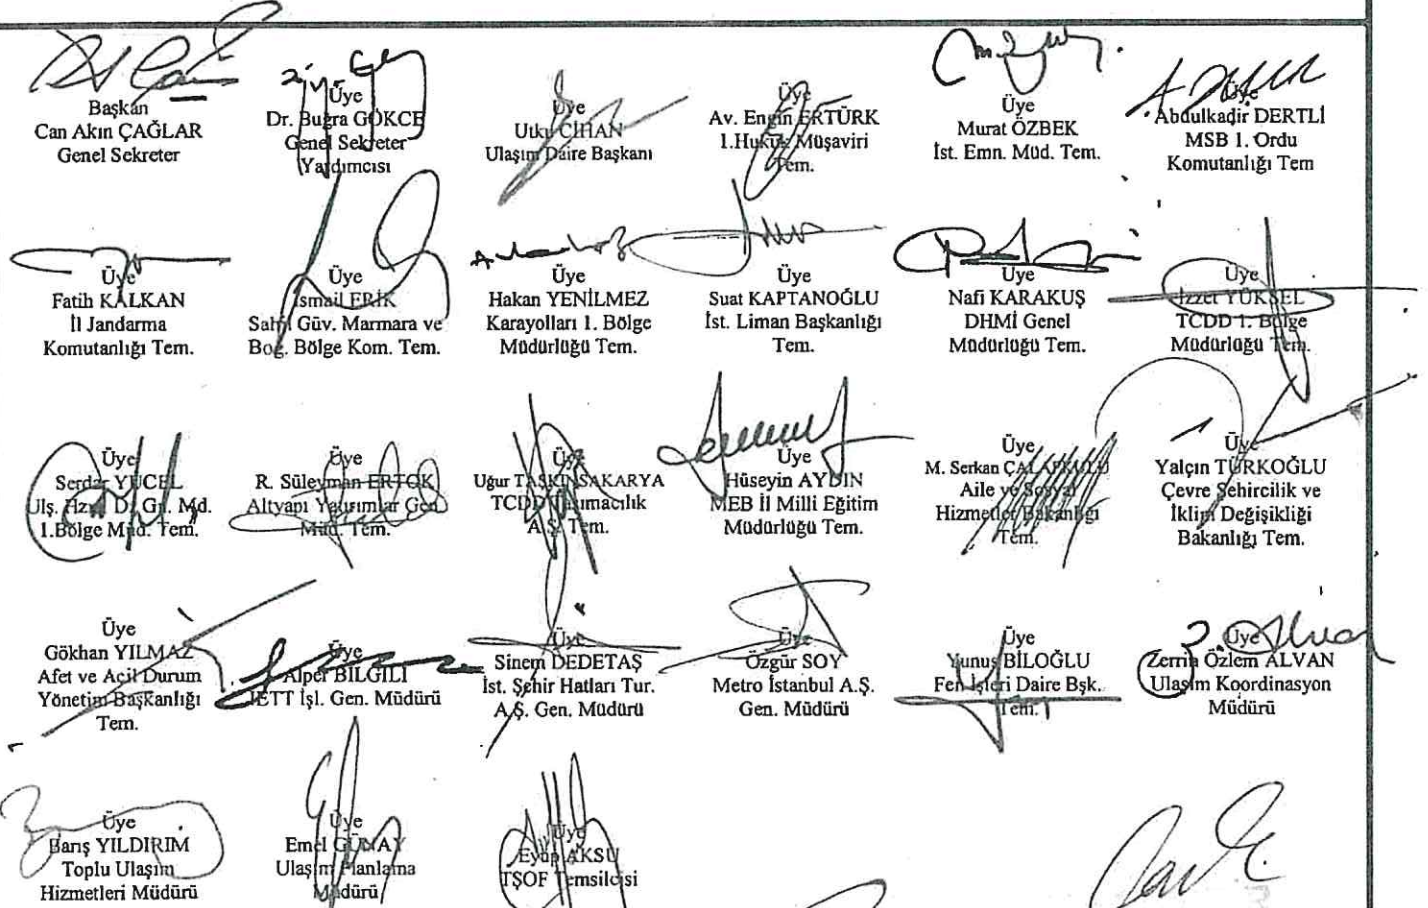 Başkan
Can Akın ÇAĞLAR
Genel Sekreter
Üye
Dr. Buğra GÖKCE
Genel Sekreter
Yardımcısı
Üye
Utku CİHAN
Ulaşım Daire Başkanı
Üye
Av. Engin ERTÜRK
1.Hukuk Müşaviri
Tem.
Üye
Murat ÖZBEK
İst. Emn. Müd. Tem.
Üye
Abdulkadir DERTLİ
MSB 1. Ordu
Komutanlığı Tem
Üye
Fatih KALKAN
İl Jandarma
Komutanlığı Tem.
Üye
İsmail ERİK
Sahil Güv. Marmara ve
Boğ. Bölge Kom. Tem.
Üye
Hakan YENİLMEZ
Karayolları 1. Bölge
Müdürlüğü Tem.
Üye
Suat KAPTANOĞLU
İst. Liman Başkanlığı
Tem.
Üye
Nafi KARAKUŞ
DHMİ Genel
Müdürlüğü Tem.
Üye
İzzet YÜKSEL
TCDD 1. Bölge
Müdürlüğü Tem.
Üye
Serdar YÜCEL
Ulş. Hzm. D. Gn. Md.
1.Bölge Müd. Tem.
Üye
R. Süleyman ERTOK
Altyapı Yatırımlar Gen.
Müd. Tem.
Üye
Uğur TAŞKINSAKARYA
TCDD Taşımacılık
A.Ş. Tem.
Üye
Hüseyin AYDIN
MEB İl Milli Eğitim
Müdürlüğü Tem.
Üye
M. Serkan
Aile ve Sosyal
Hizmetler Bakanlığı
Tem.
Üye
Yalçın TÜRKOĞLU
Çevre Şehircilik ve
İklim Değişikliği
Bakanlığı Tem.
Üye
Gökhan YILMAZ
Afet ve Acil Durum
Yönetim Başkanlığı
Tem.
Üye
Alper BİLGİLİ
İETT İşl. Gen. Müdürü
Üye
Sinem DEDETAŞ
İst. Şehir Hatları Tur.
A.Ş. Gen. Müdürü
Üye
Özgür SOY
Metro İstanbul A.Ş.
Gen. Müdürü
Üye
Yunus BİLOĞLU
Fen İşleri Daire Bşk.
Tem.
Üye
Zerrin Özlem ALVAN
Ulaşım Koordinasyon
Müdürü
Üye
Barış YILDIRIM
Toplu Ulaşım
Hizmetleri Müdürü
Üye
Emel GÜNAY
Ulaşım Planlama
Müdürü
Üye
Eyüp AKSU
TŞOF Temsilcisi